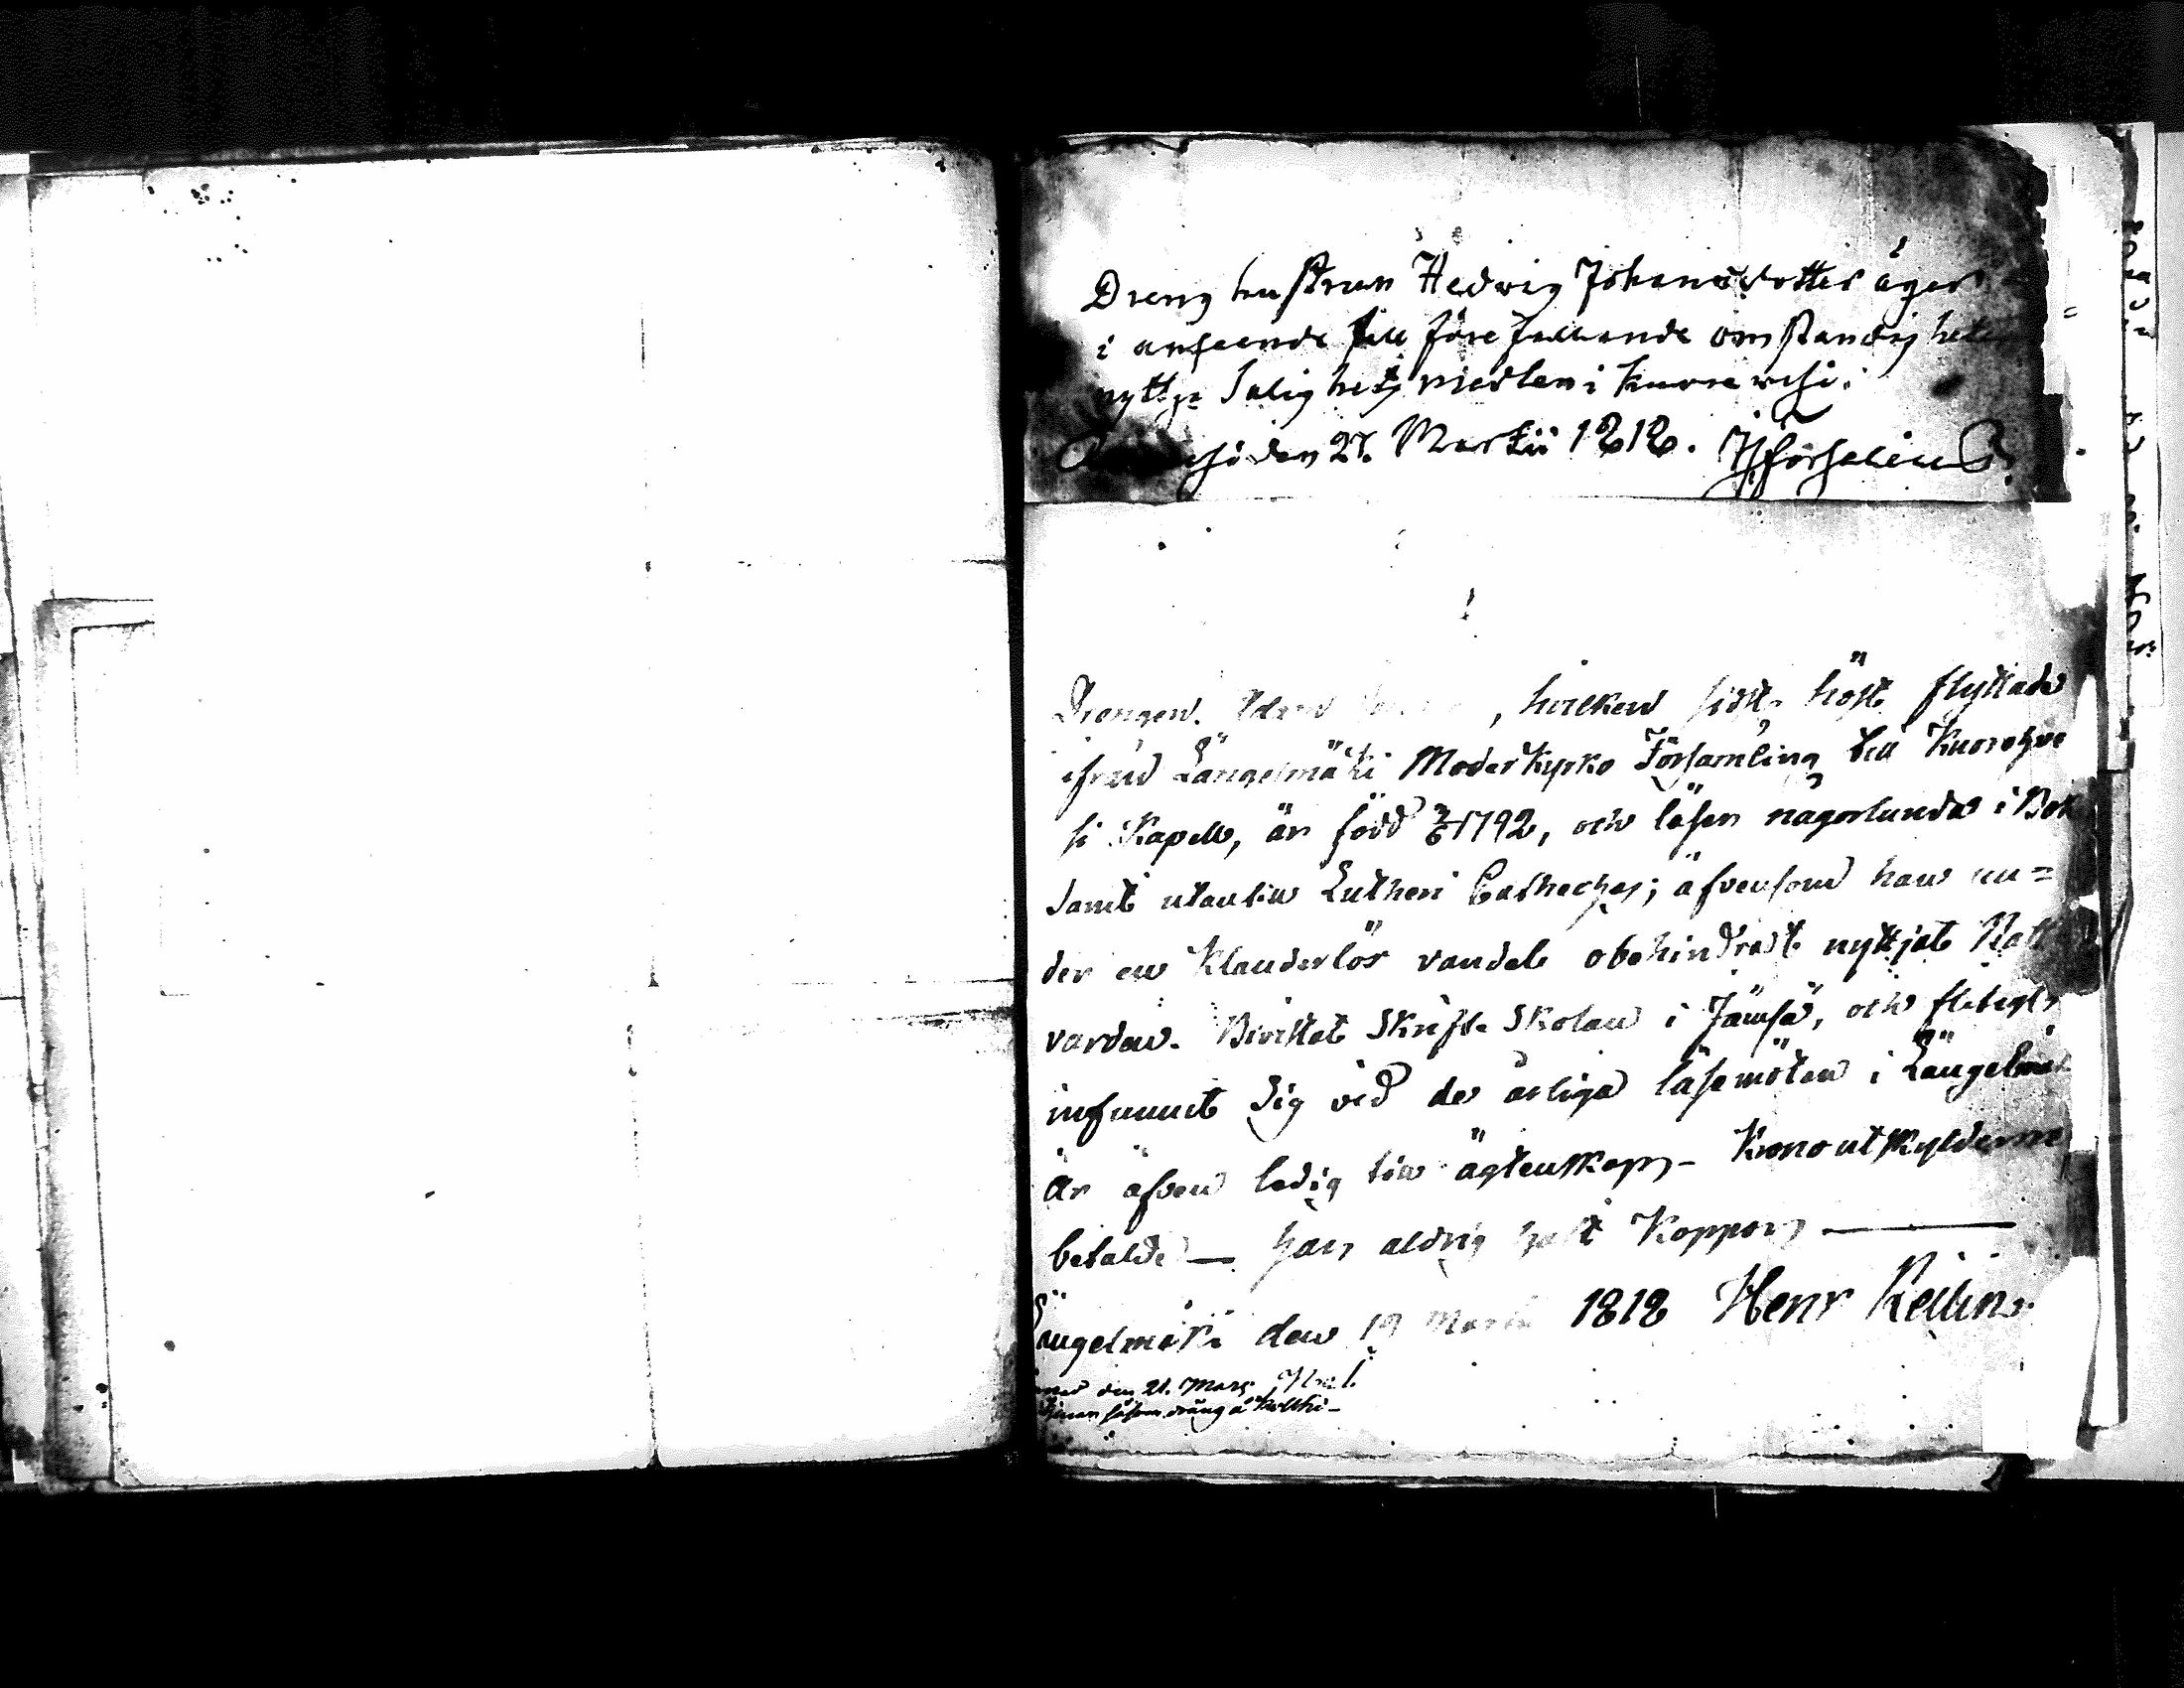 Dreng hustrun Hedvig Johansdotter äger
i anseende till förefallande omständighet
nyttja Salighets medlen i Kuorewesi.
den 27. Martii 1818. Forselius
Drengen Adam , hvilken sidst. höst flyttade
ifrån Längelmäki Moderkyrko Församling till Kuorehve
si Kapell, är född 1792, och läser någorlunda i Bok
samt utantill Lutheri Cateches; äfvensom han un=
der en klanderlös vandel obehindradt nyttjat Natt
varden. Bivistat Skrift Skolan i Jämsä, och flitigt
infunnit Sig vid de årliga läsemöten i Längelmä
är äfven ledig till ägtenskap - Krono utskylderne
betalde — han aldrig haft Koppor —
Längelmäki den 19 Martii 1818 Henr Rellin
den 21. Mars
såsom dräng å